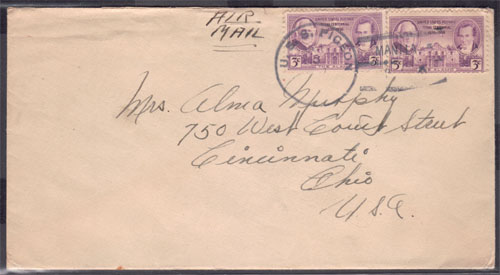 AIR
MAIL
UNITED STATES POSTAGE
U.S.S. PIGEON
MANILA
3¢
3¢
Mrs. Alma Murphy
750 West Court Street
Cincinnati
Ohio
U.S.A.